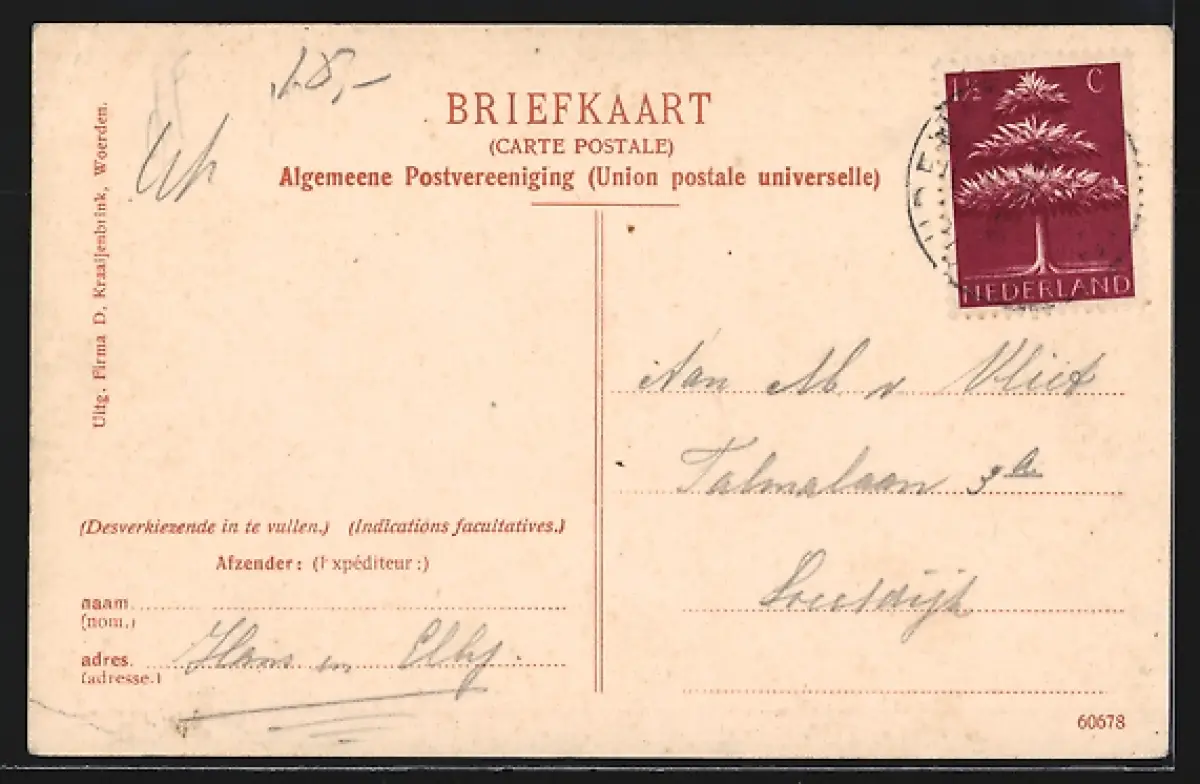 18,-
BRIEFKAART
(CARTE POSTALE)
Algemeene Postvereeniging (Union postale universelle)
1½ C
NEDERLAND
Uitg. Firma D. Kraaijenbrink, Woerden.
Aan M v Vliet
Talmalaan 3a
Soestdijk
(Desverkiezende in te vullen.) (Indications facultatives.)
Afzender: (Expéditeur:)
naam
(nom.)
adres. Hans en Elly.
(adresse.)
60678